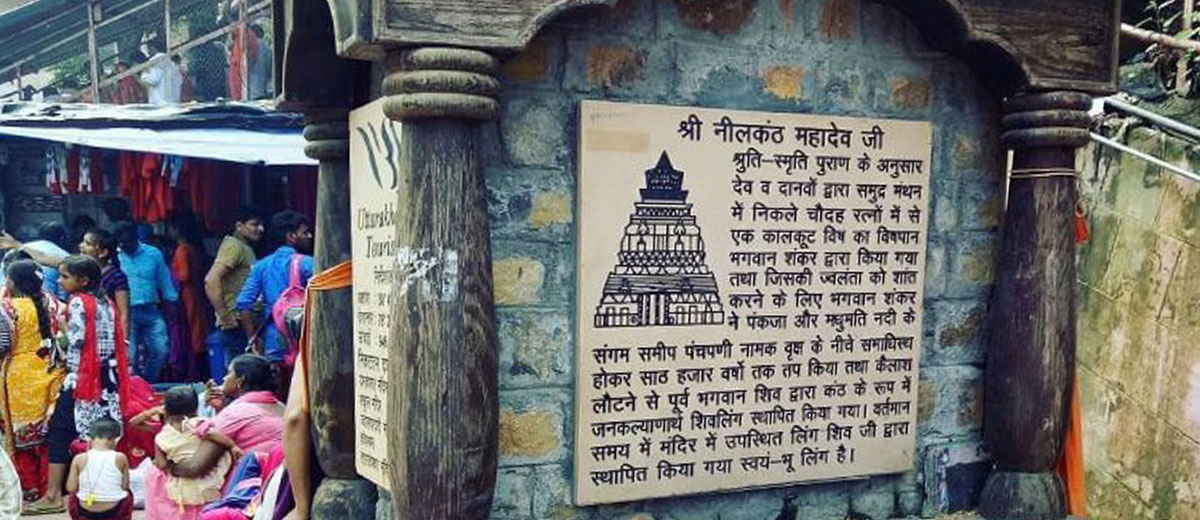 श्री नीलकंठ महादेव जी
श्रुति–स्मृति पुराण के अनुसार
देव व दानवों द्वारा समुद्र मंथन
में निकले चौदह रत्नों में से
एक कालकूट विष का विषपान
भगवान शंकर द्वारा किया गया
तथा जिसकी ज्वलंता को शांत
करने के लिए भगवान शंकर
ने पंकजा और मधुमति नदी के
संगम समीप पंचपणी नामक वृक्ष के नीचे समाधिस्थ
होकर साठ हजार वर्षो तक तप किया तथा कैलाश
लौटने से पूर्व भगवान शिव द्वारा कंठ के रूप में
जनकल्याणार्थ शिवलिंग स्थापित किया गया। वर्तमान
समय में मंदिर में उपस्थित लिंग शिव जी द्वारा
स्थापित किया गया स्वयं–भू लिंग है।